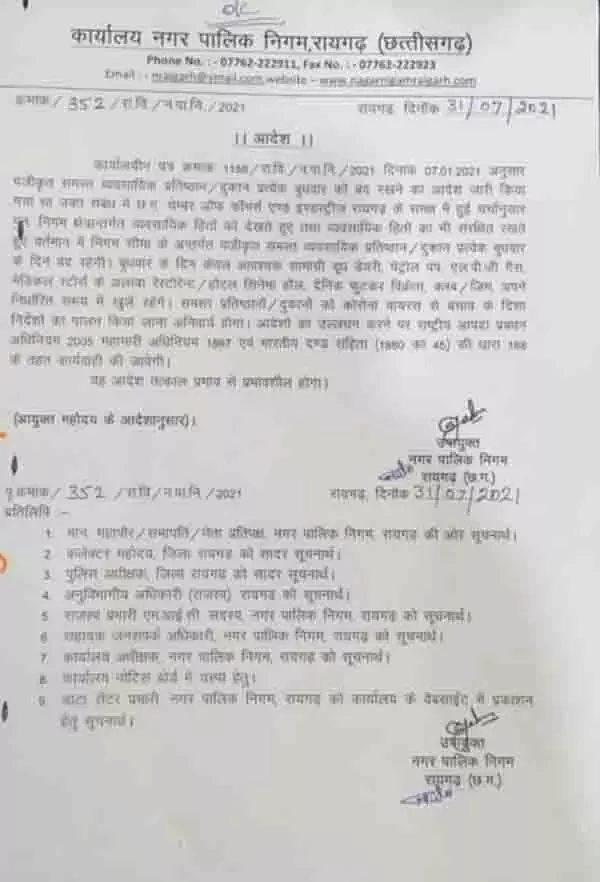 o/c
कार्यालय नगर पालिक निगम,रायगढ़ (छत्तीसगढ़)
Phone No. : - 07762-222911, Fax No. : - 07762-222923
Email :- website – www.nagarnigamraigarh.com
क्रमांक / 352 / रा.वि / न.पा.नि. / 2021 रायगढ़, दिनाँक 31/07/2021
।। आदेश ।।
कार्यालयीन पत्र क्रमांक 1188/रा.वि/न.पा.नि./2021 दिनांक 07.01.2021 अनुसार
पंजीकृत समस्त व्यवसायिक प्रतिष्ठान/दुकान प्रत्येक बुधवार को बंद रखने का आदेश जारी किया
गया था उक्त संबंध में छ.ग. चेम्बर ऑफ कॉमर्स एण्ड इण्डस्ट्रीज रायगढ़ के साथ में हुई चर्चानुसार
निगम क्षेत्रान्तर्गत व्यवसायिक हितों को देखते हुए तथा व्यवसायिक हितों का भी संरक्षित रखते
हुए वर्तमान में निगम सीमा के अन्तर्गत पंजीकृत समस्त व्यवसायिक प्रतिष्ठान/दुकान प्रत्येक बुधवार
के दिन बंद रहेगी। बुधवार के दिन केवल आवश्यक सामाग्री दूध डेयरी, पेट्रोल पंप, एल.पी.जी गैस,
मेडिकल स्टोर्स के अलावा रेस्टोरेन्ट/होटल सिनेमा हॉल, दैनिक फुटकर विक्रेता, क्लब/जिम, अपने
निर्धारित समय में खुले रहेंगे। समस्त प्रतिष्ठानों/दुकानों को कोरोना वायरस से बचाव के दिशा
निर्देशों का पालन किया जाना अनिवार्य होगा। आदेशों का उल्लंघन करने पर राष्ट्रीय आपदा प्रबंधन
अधिनियम 2005 महामारी अधिनियम 1897 एवं भारतीय दण्ड संहिता (1860 का 45) की धारा 188
के तहत कार्यवाही की जावेगी।
यह आदेश तत्काल प्रभाव से प्रभावशील होगा।
(आयुक्त महोदय के आदेशानुसार)।
उपायुक्त
नगर पालिक निगम
रायगढ़ (छ.ग.)
पृ.क्रमांक / 352 / रा.वि / न.पा.नि. / 2021 रायगढ़, दिनांक 31/07/2021
प्रतिलिपि :-
1. मान. महापौर/सभापति/नेता प्रतिपक्ष, नगर पालिक निगम, रायगढ़ की ओर सूचनार्थ।
2. कलेक्टर महोदय, जिला रायगढ़ को सादर सूचनार्थ।
3. पुलिस अधीक्षक, जिला रायगढ़ को सादर सूचनार्थ।
4. अनुविभागीय अधिकारी (राजस्व) रायगढ़ को सूचनार्थ।
5. राजस्व प्रभारी एम.आई.सी सदस्य, नगर पालिक निगम, रायगढ़ को सूचनार्थ।
6. सहायक जनसंपर्क अधिकारी, नगर पालिक निगम, रायगढ़ को सूचनार्थ।
7. कार्यालय अधीक्षक, नगर पालिक निगम, रायगढ़ को सूचनार्थ।
8. कार्यालय नोटिस बोर्ड में चस्पा हेतु।
9. डाटा सेंटर प्रभारी नगर पालिक निगम, रायगढ़ को कार्यालय के वेबसाईट में प्रकाशन
हेतु सूचनार्थ।
उपायुक्त
नगर पालिक निगम
रायगढ़ (छ.ग.)